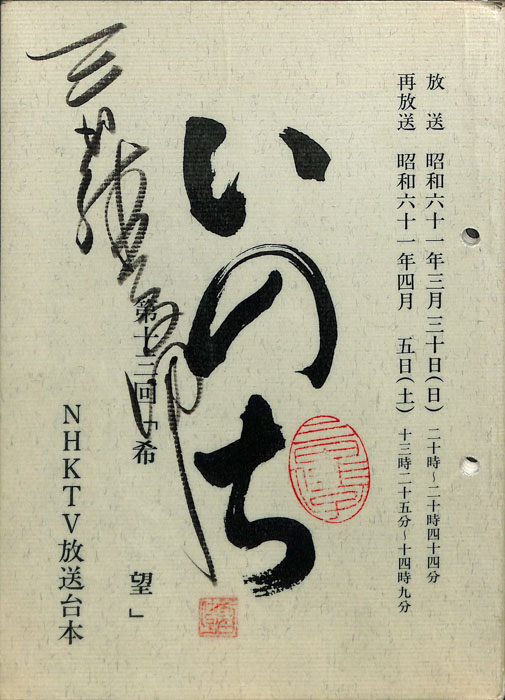 放　送　昭和六十一年三月三十日(日)　二十時～二十時四十四分
再放送　昭和六十一年四月　五日(土)　十三時二十五分～十四時九分
いのち
第十三回「希　望」
NHKTV放送台本